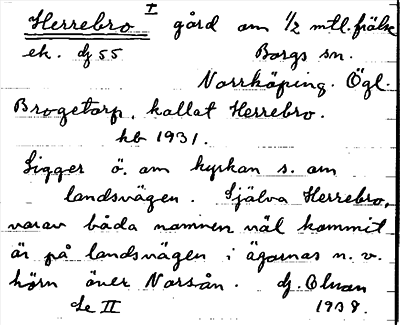 Herrebro I gård om 1/2 mtl. frälse
ek. dj 55 Borgs sn.
Norrköping. Ögl.
Brogetorp, kallat Herrebro.
hb 1931.
Ligger ö. om kyrkan s. om
landsvägen. Själva Herrebro,
varav båda namnen väl kommit
är på landsvägen i ägornas n. v.
hörn över Norsån. dj. Olnan
de II 1938.